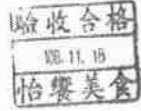 驗收合格
108.11.18
怡饗美食